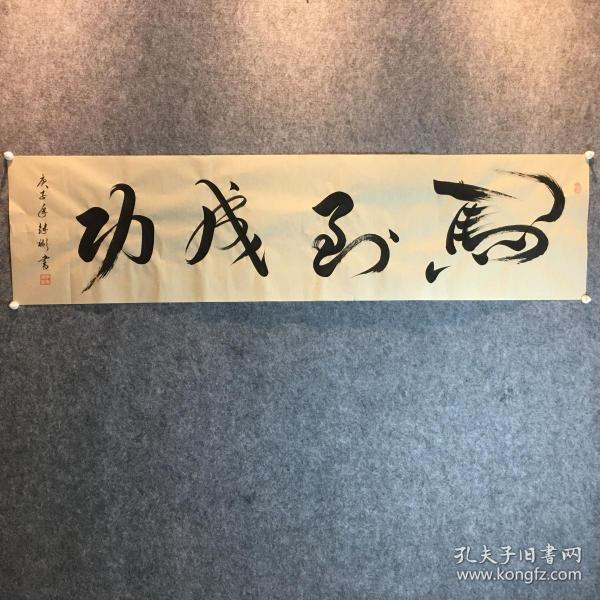 馬到成功
庚子年陈彬書
孔夫子旧書网
www.kongfz.com